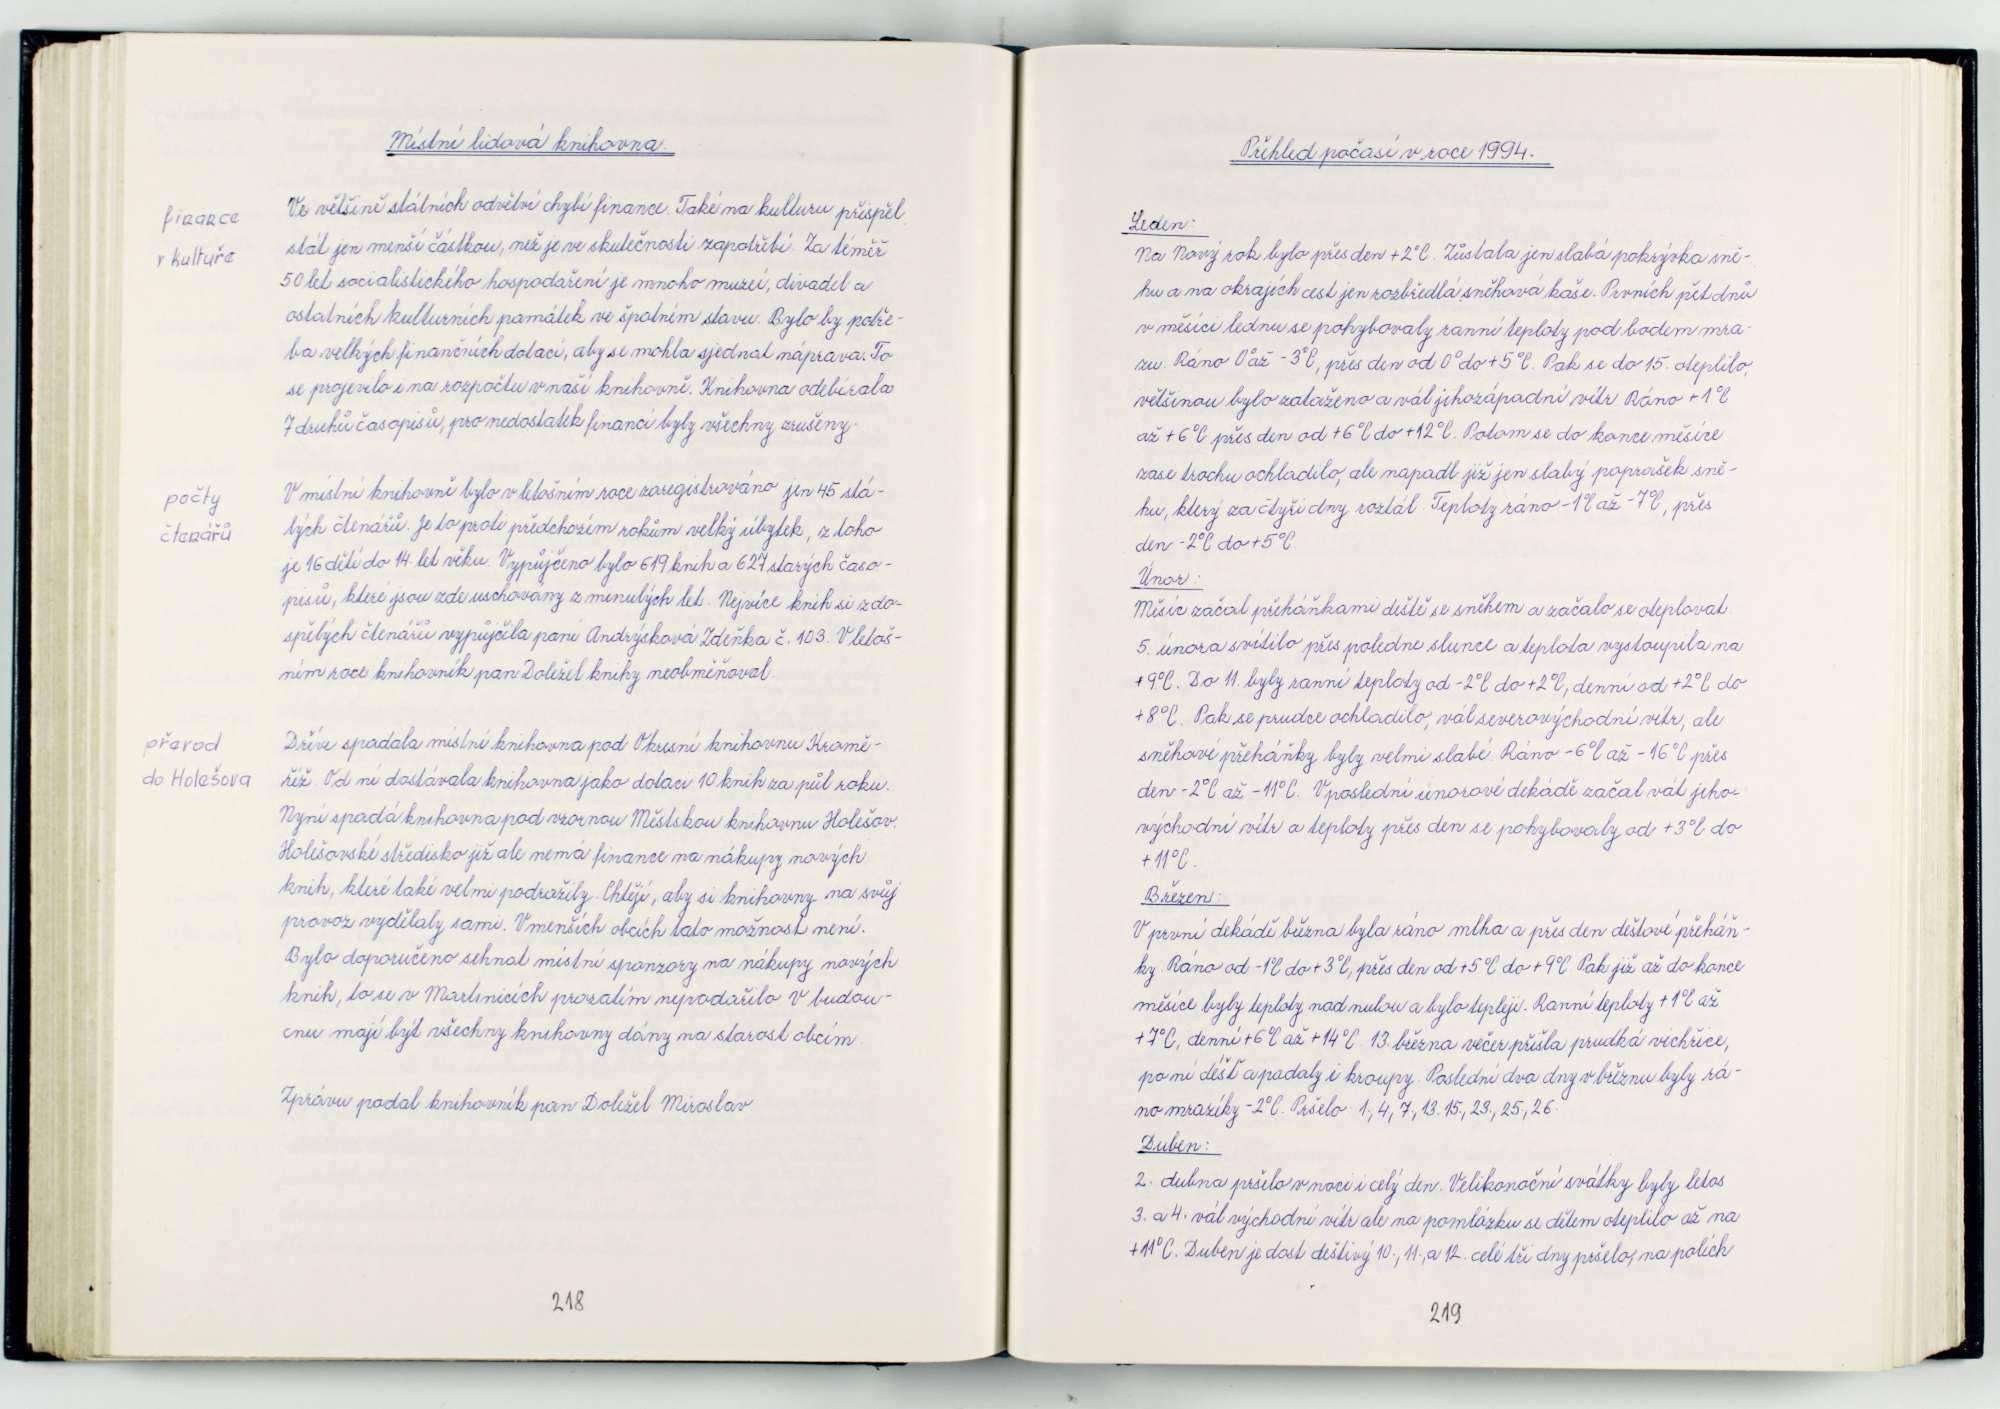 Místní lidová knihovna.
finance
v kultuře
Ve většině státních odvětví chybí finance. Také na kulturu přispěl
stát jen menší částkou, než je ve skutečnosti zapotřebí. Za téměř
50 let socialistického hospodaření je mnoho muzeí, divadel a
ostatních kulturních památek ve špatném stavu. Bylo by potře-
ba velkých finančních dotací, aby se mohla sjednat náprava. To
se projevilo i na rozpočtu v naší knihovně. Knihovna odebírala
7 druhů časopisů, pro nedostatek financí byly všechny zrušeny.
počty
čtenářů
V místní knihovně bylo v letošním roce zaregistrováno jen 45 stá-
lých čtenářů. Je to proti předchozím rokům velký úbytek, z toho
je 16 dětí do 14 let věku. Vypůjčeno bylo 619 knih a 627 starých časo-
pisů, které jsou zde uschovány z minulých let. Nejvíce knih si z do-
spělých čtenářů vypůjčila paní Andrýsková Zdeňka č. 103. V letoš-
ním roce knihovník pan Doležel knihy neobměňoval.
převod
do Holešova
Dříve spadala místní knihovna pod Okresní knihovnu Kromě-
říž. Od ní dostávala knihovna jako dotaci 10 knih za půl roku.
Nyní spadá knihovna pod vzornou Městskou knihovnu Holešov.
Holešovské středisko již ale nemá finance na nákupy nových
knih, které také velmi podražily. Chtějí, aby si knihovny na svůj
provoz vydělaly sami. V menších obcích tato možnost není.
Bylo doporučeno sehnat místní sponzory na nákupy nových
knih, to se v Martinicích prozatím nepodařilo. V budou-
cnu mají být všechny knihovny dány na starost obcím.
Zprávu podal knihovník pan Doležel Miroslav
218
Přehled počasí v roce 1994.
Leden:
Na Nový rok bylo přes den +2°C. Zůstala jen slabá pokrývka sně-
hu a na okrajích cest jen rozbředlá sněhová kaše. Prvních pět dnů
v měsíci lednu se pohybovaly ranní teploty pod bodem mra-
zu. Ráno 0° až -3°C, přes den od 0° do +5°C. Pak se do 15. oteplilo,
většinou bylo zataženo a vál jihozápadní vítr. Ráno +1°C
až +6°C přes den od +6°C do +12°C. Potom se do konce měsíce
zase trochu ochladilo, ale napadl již jen slabý poprašek sně-
hu, který za čtyři dny roztál. Teploty ráno -1°C až -7°C, přes
den -2°C do +5°C.
Únor:
Měsíc začal přeháňkami deště se sněhem a začalo se oteplovat.
5. února svítilo přes poledne slunce a teplota vystoupila na
+9°C. Do 11. byly ranní teploty od -2°C do +2°C, denní od +2°C do
+8°C. Pak se prudce ochladilo, vál severovýchodní vítr, ale
sněhové přeháňky byly velmi slabé. Ráno -6°C až -16°C přes
den -2°C až -11°C. V poslední únorové dekádě začal vát jiho-
východní vítr a teploty přes den se pohybovaly od +3°C do
+11°C.
Březen:
V první dekádě března byla ráno mlha a přes den dešťové přeháň-
ky. Ráno od -1°C do +3°C, přes den od +5°C do +9°C. Pak již až do konce
měsíce byly teploty nad nulou a bylo tepleji. Ranní teploty +1°C až
+7°C, denní +6°C až +14°C. 13. března večer přišla prudká vichřice,
po ní déšť a padaly i kroupy. Poslední dva dny v březnu byly rá-
no mrazíky -2°C. Pršelo 1., 4., 7., 13. 15., 23., 25., 26.
Duben:
2. dubna pršelo v noci i celý den. Velikonoční svátky byly letos
3. a 4. vál východní vítr ale na pomlázku se dětem oteplilo až na
+11°C. Duben je dost deštivý 10., 11., a 12. celé tři dny pršelo, na polích
219